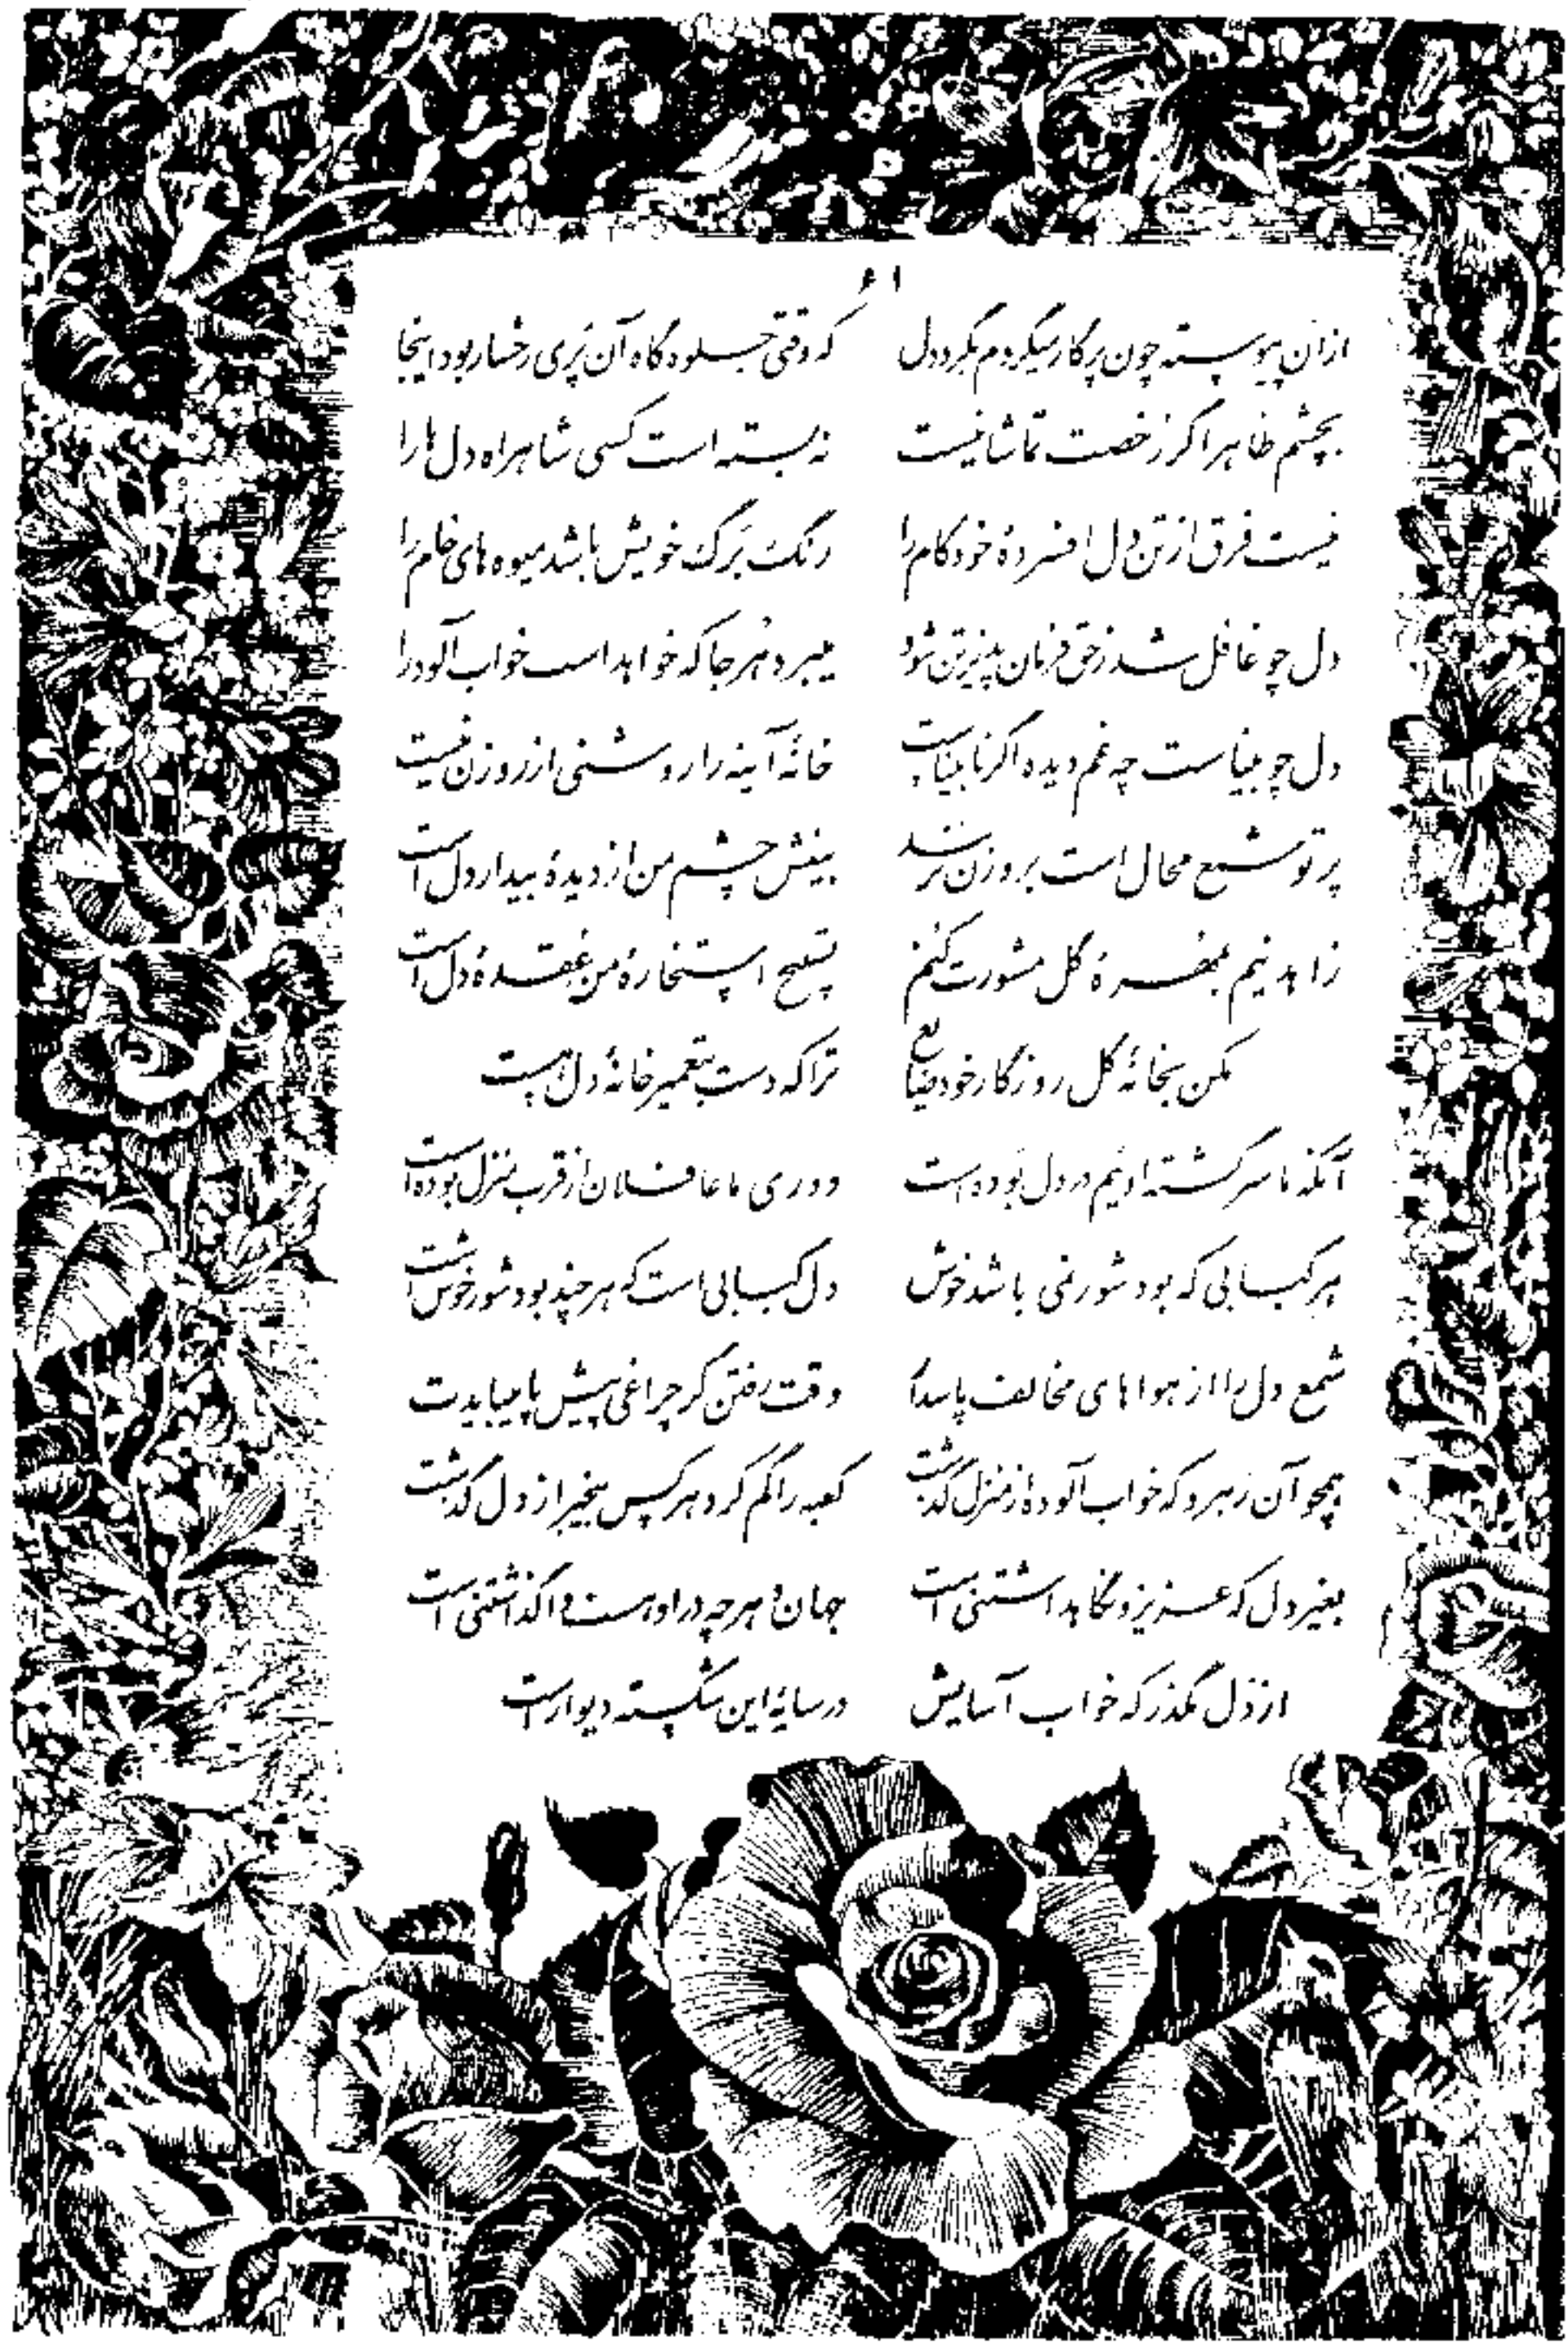 ۶۱
ازآن پیوسته چون پرگار میگردم بگرد دل که وقتی جلوه گاه آن پری رخسار بود اینجا
بچشم ظاهر اگر رخصت تماشا نیست نه بسته است کسی شاهراه دل ها را
نیست فرق از تن دل افسردهٔ خود کام را رنگ برگ خویش باشد میوه های خام را
دل چو غافل شد ز حق فرمان پذیر تن شود میبرد هر جا که خواهد اسب خواب آلود را
دل چو بیناست چه غم دیده اگر نابیناست خانهٔ آینه را روشنی از روزن نیست
پرتو شمع محال است بروزن نرسد بینش چشم من از دیدهٔ بیدار دل است
زاهد نیم بمهرهٔ گل مشورت کنم تسبیح استخارهٔ من عقدهٔ دل است
مکن بخانهٔ گل روزگار خود ضایع ترا که دست بتعمیر خانهٔ دل هست
آنکه ما سرگشته اوئیم در دل بوده است دوری ما غافلان از قرب منزل بوده است
هر کبابی که بود شور نمی باشد خوش دل کبابی است که هر چند بود شور خوش است
شمع دل را از هواهای مخالف پاسدار وقت رفتن گر چراغی پیش پا میبایدت
همچو آن رهرو که خواب آلوده از منزل گذشت کعبه را گم کرد هر کس بیخبر از دل گذشت
بغیر دل که عزیز و نگاهداشتنی است جهان و هر چه در او هست واگذاشتنی است
از دل مگذر که خواب آسایش در سایهٔ این شکسته دیوار است